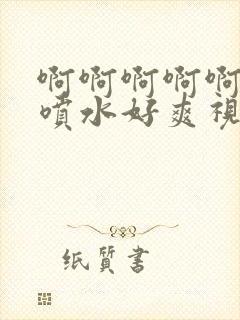 啊啊啊啊啊
噴水好爽視
纸质書